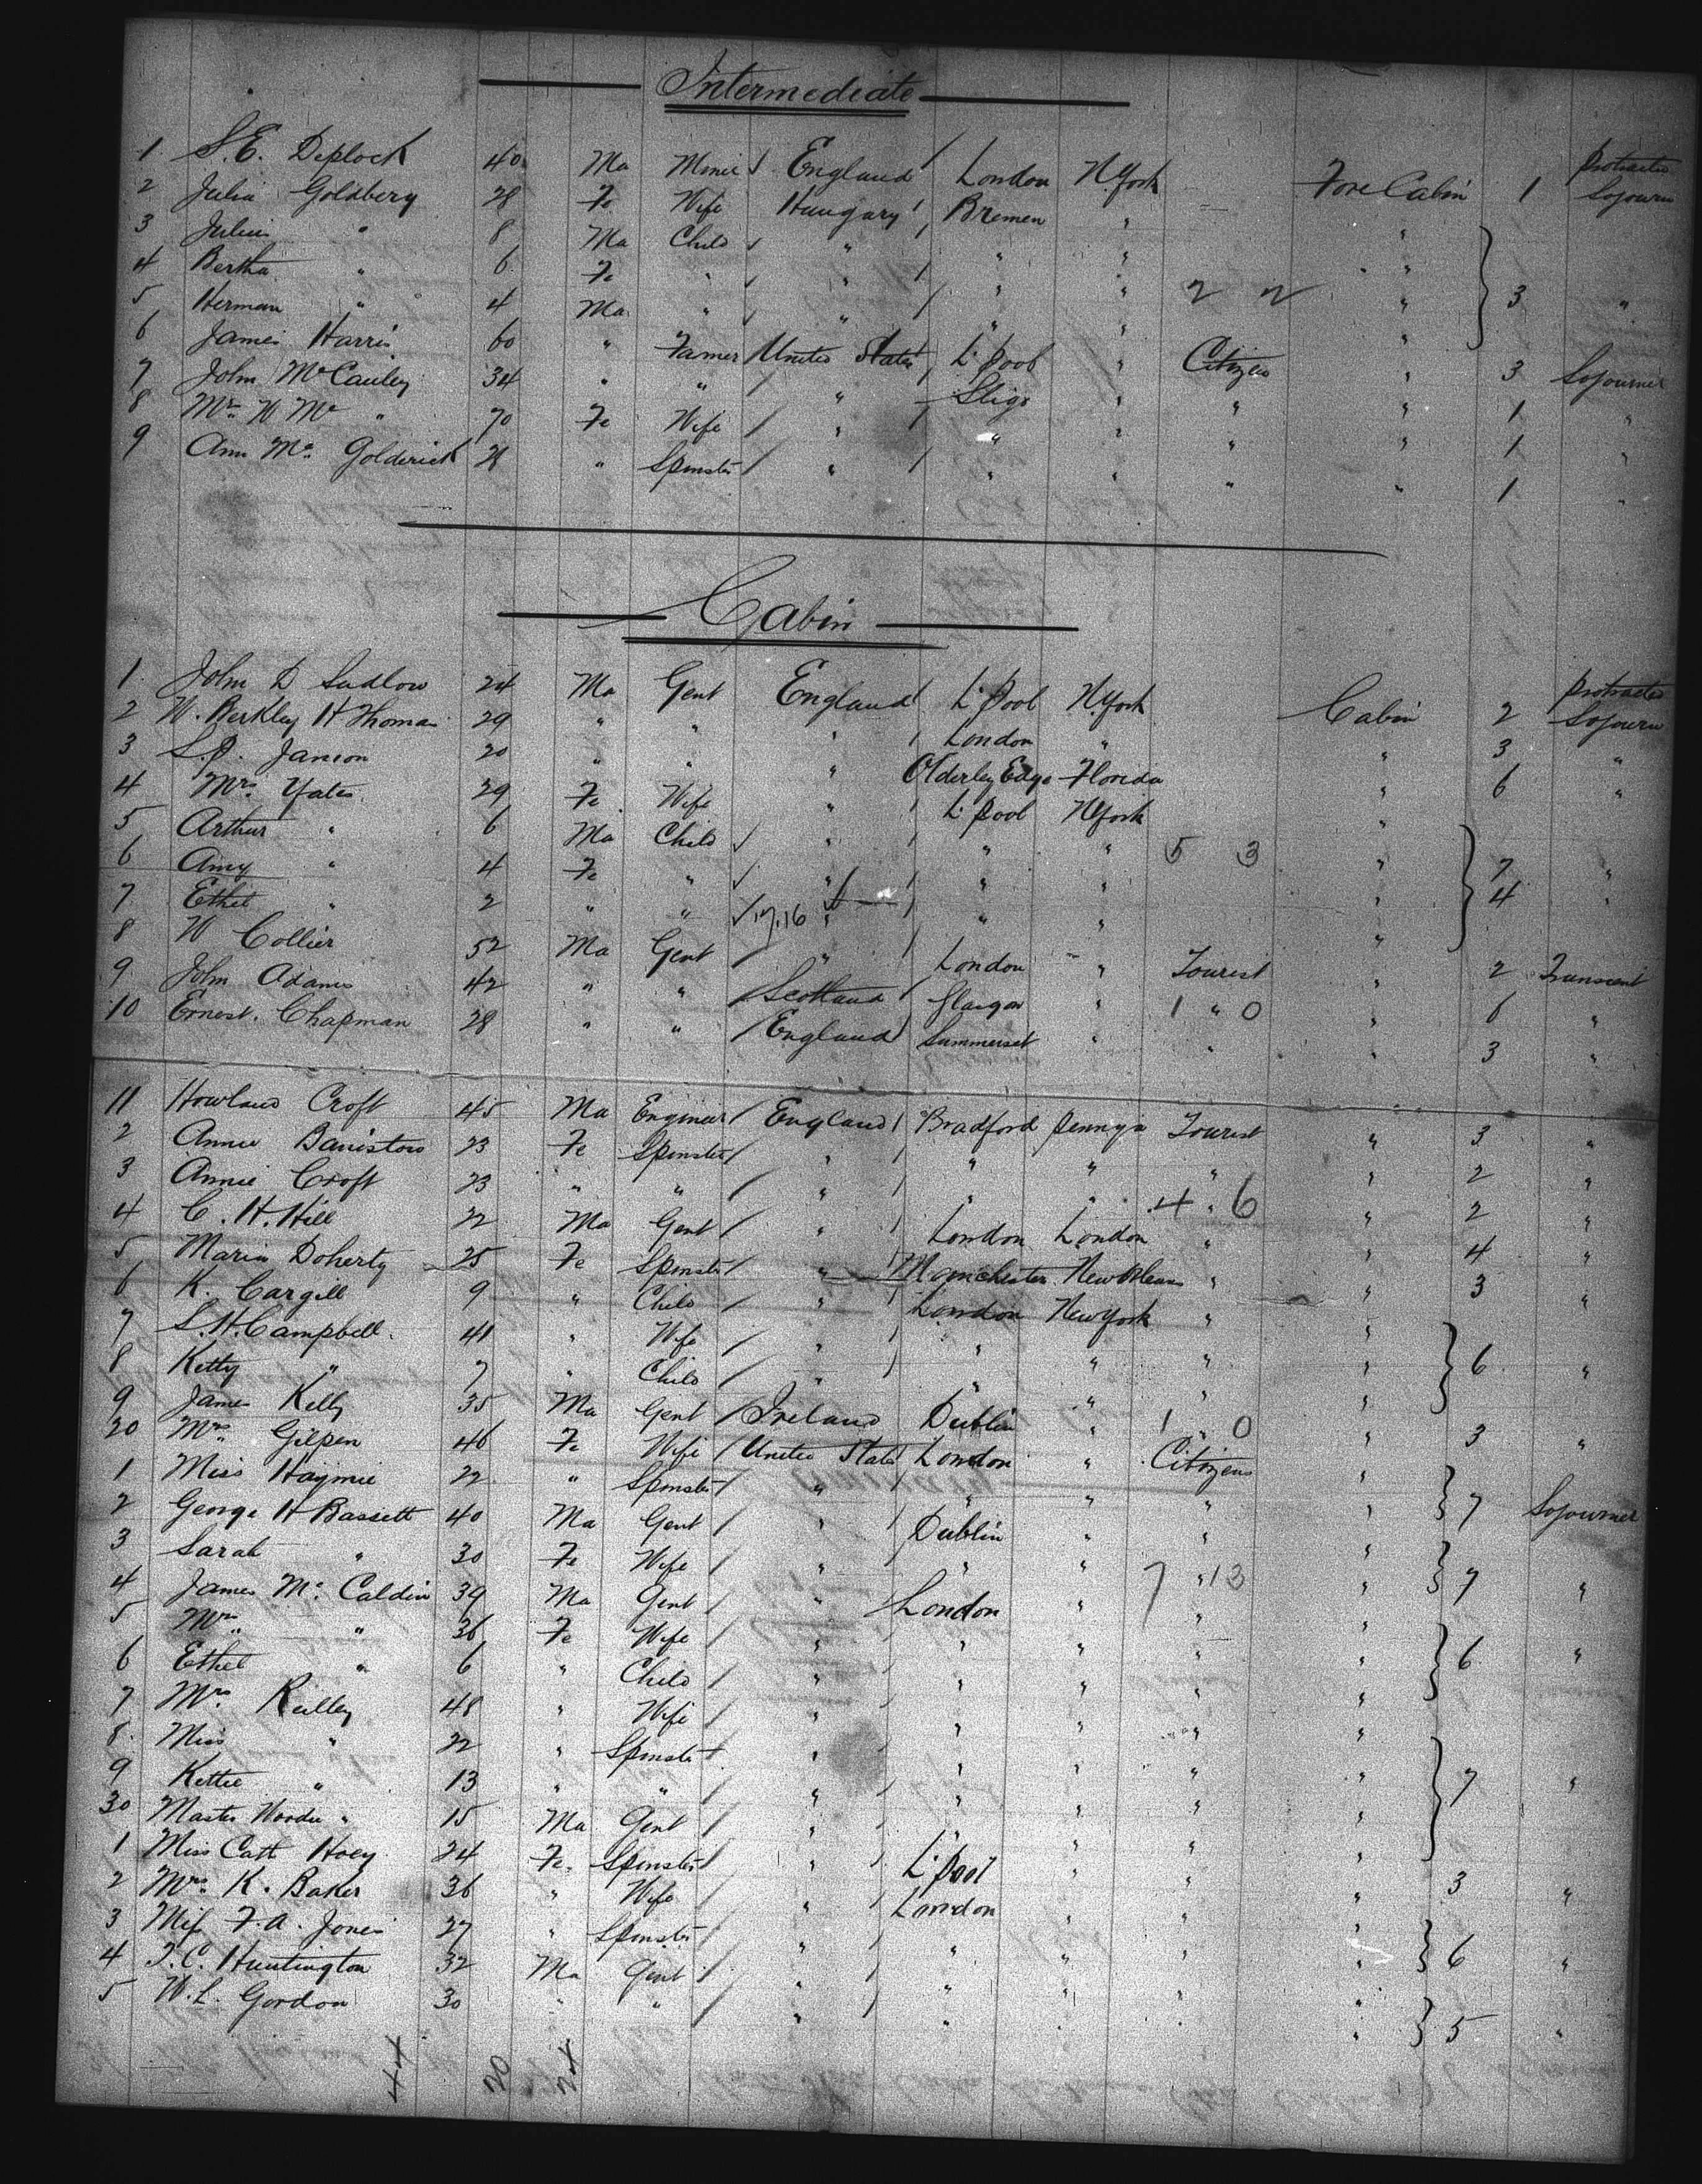 Intermediate
1. S. E. Deplock 40 Ma Miner England London N York Fore Cabin 1 Protracted Sojourn
2 Julia Goldberg 28 Fe Wife Hungary Bremen "
3 Julius " 8 Ma Child " " " "
4 Bertha " 6 Fe " " " " "
5 Herman " 4 Ma " " " " 2 2 " 3 "
6 James Harris 60 " Famer United States L'pool " Citizen " 3 Sojourner
7 John McCauley 34 " " " Sligo " " " 1 "
8 Mrs W Mc " 70 Fe Wife " " " " " 1 "
9 Ann Mc Golderick " Spinster " " " " " 1 "
Cabin
1. John D Sudlow 24 Ma Gent England L'pool N.York Cabin 2 Protracted Sojourn
2 W. Berkley H Thomas 29 " " " London " " 3 "
3 S. P. Janion 20 " " " Olderley Edge Florida " 6 "
4 Mrs Yates 29 Fe Wife " L'pool N York "
5 Arthur " 6 Ma Child " " " 5 3 " 7 "
6 Amy " 4 Fe " " " " " 4 "
7. Ethel " 2 " " 17.16 " " " "
8 W Collier 52 Ma Gent " London " Tourist " 2 Transcent
9 John Adams 42 " " Scotland Glasgow " 1 " 0 " 6 "
10 Ernest. Chapman 28 " " England Summerset " " " 3 "
11 Howland Croft 45 Ma Engineer England Bradford Pennya Tourist " 3 "
2 Annie Banistow 23 Fe Spinster " " " " " 2 "
3 Annie Croft 23 " " " " " 4 " 6 " 2 "
4 C. H. Hill 22 Ma Gent " London London " " 4 "
5 Maria Doherty 25 Fe Spinster " Manchester New Orleans " " 3 "
6 K. Cargill 9 " Child " London New York " "
7 S. H. Campbell. 41 " Wife " " " " " 6 "
8 Ketty " 7 " Child " " " " "
9 James Kelly 35 Ma Gent Ireland Dublin " 1 " 0 " 3 "
20 Mrs Gilpen 46 Fe Wife United States London " Citizens "
1 Miss Haymie 22 " Spinster " " " " " 7 Sojourner
2 George H Bassett 40 Ma Gent " Dublin " " "
3 Sarah " 30 Fe Wife " " " 7 " 13 " 7 "
4 James Mc Caldin 39 Ma Gent " London " " "
5 Mrs " 36 Fe Wife " " " " " 6 "
6 Ethel " 6 " Child " " " " "
7 Mrs Reilley 48 " Wife " " " " "
8. Miss " 22 " Spinster " " " " "
9 Kettie " 13 " " " " " " " 7 "
30 Master " 15 Ma Gent " " " " "
1 Miss Cath Hoey 24 Fe. Spinster " L'pool " " " 3 "
2 Mrs K. Baker 36 " Wife " London " " "
3 Miss F. A. Jones 27 " Spinster " " " " " 6 "
4 T. C. Huntington 32 Ma Gent " " " " "
5 W. L. Gordon 30 " " " " " " " 5 "
44 20 24